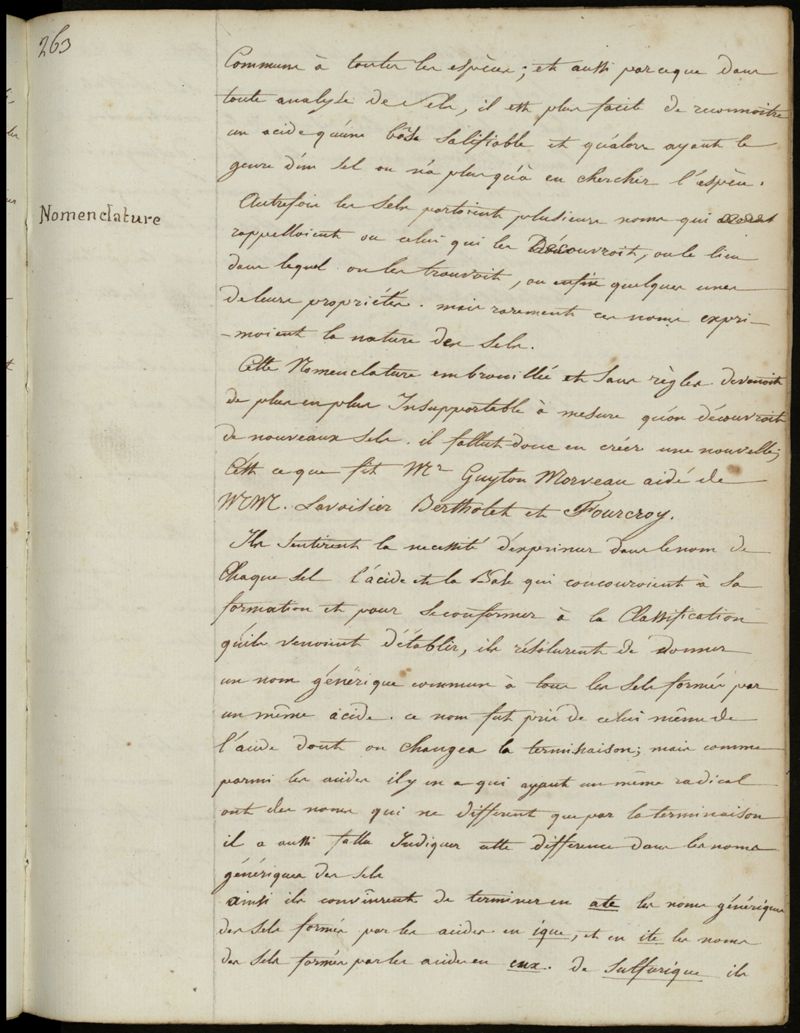 263
Communs à toutes les espèces; et aussi parceque dans
toute analyse de Sels, il est plus facile de reconnoitre
un acide qu'une bâse salifiable et qu'alors ayant le
genre d'un sel on n'a plus qu'à en chercher l'espèce.
Nomenclature
Autrefois les Sels portoient plusieurs noms qui
rappelloient ou celui qui les Découvroit, ou le lieu
dans lequel on les trouvoit, ou enfin quelques unes
de leurs propriétés. mais rarement ces noms expri-
-moient la nature des Sels.
Cette Nomenclature embrouillée et sans règles devenoit
de plus en plus Insupportable à mesure qu'on découvroit
de nouveaux Sels. il fallut donc en créer une nouvelle;
C'est ce que fit Mr Guyton Morveau aidé de
MM. Lavoisier Bertholet et Fourcroy.
Ils Sentirent la necessité d'exprimer dans le nom de
Chaque Sel l'acide et la Base qui concouroient à sa
formation et pour se conformer à la Classification
qu'ils venoient d'établir, ils résolurent de donner
un nom générique commun à tous les Sels formés par
un même acide. ce nom fut pris de celui même de
l'acide dont on changea la terminaison; mais comme
parmi les acides il y en a qui ayant un même radical
ont des noms qui ne different que par la terminaison
il a aussi fallu Indiquer cette différence dans les noms
génériques des Sels
ainsi ils convinrent de terminer en ate les noms génériques
des Sels formés par les acides en ique, et en ite les noms
des Sels formés par les acides en eux. de Sulfurique ils